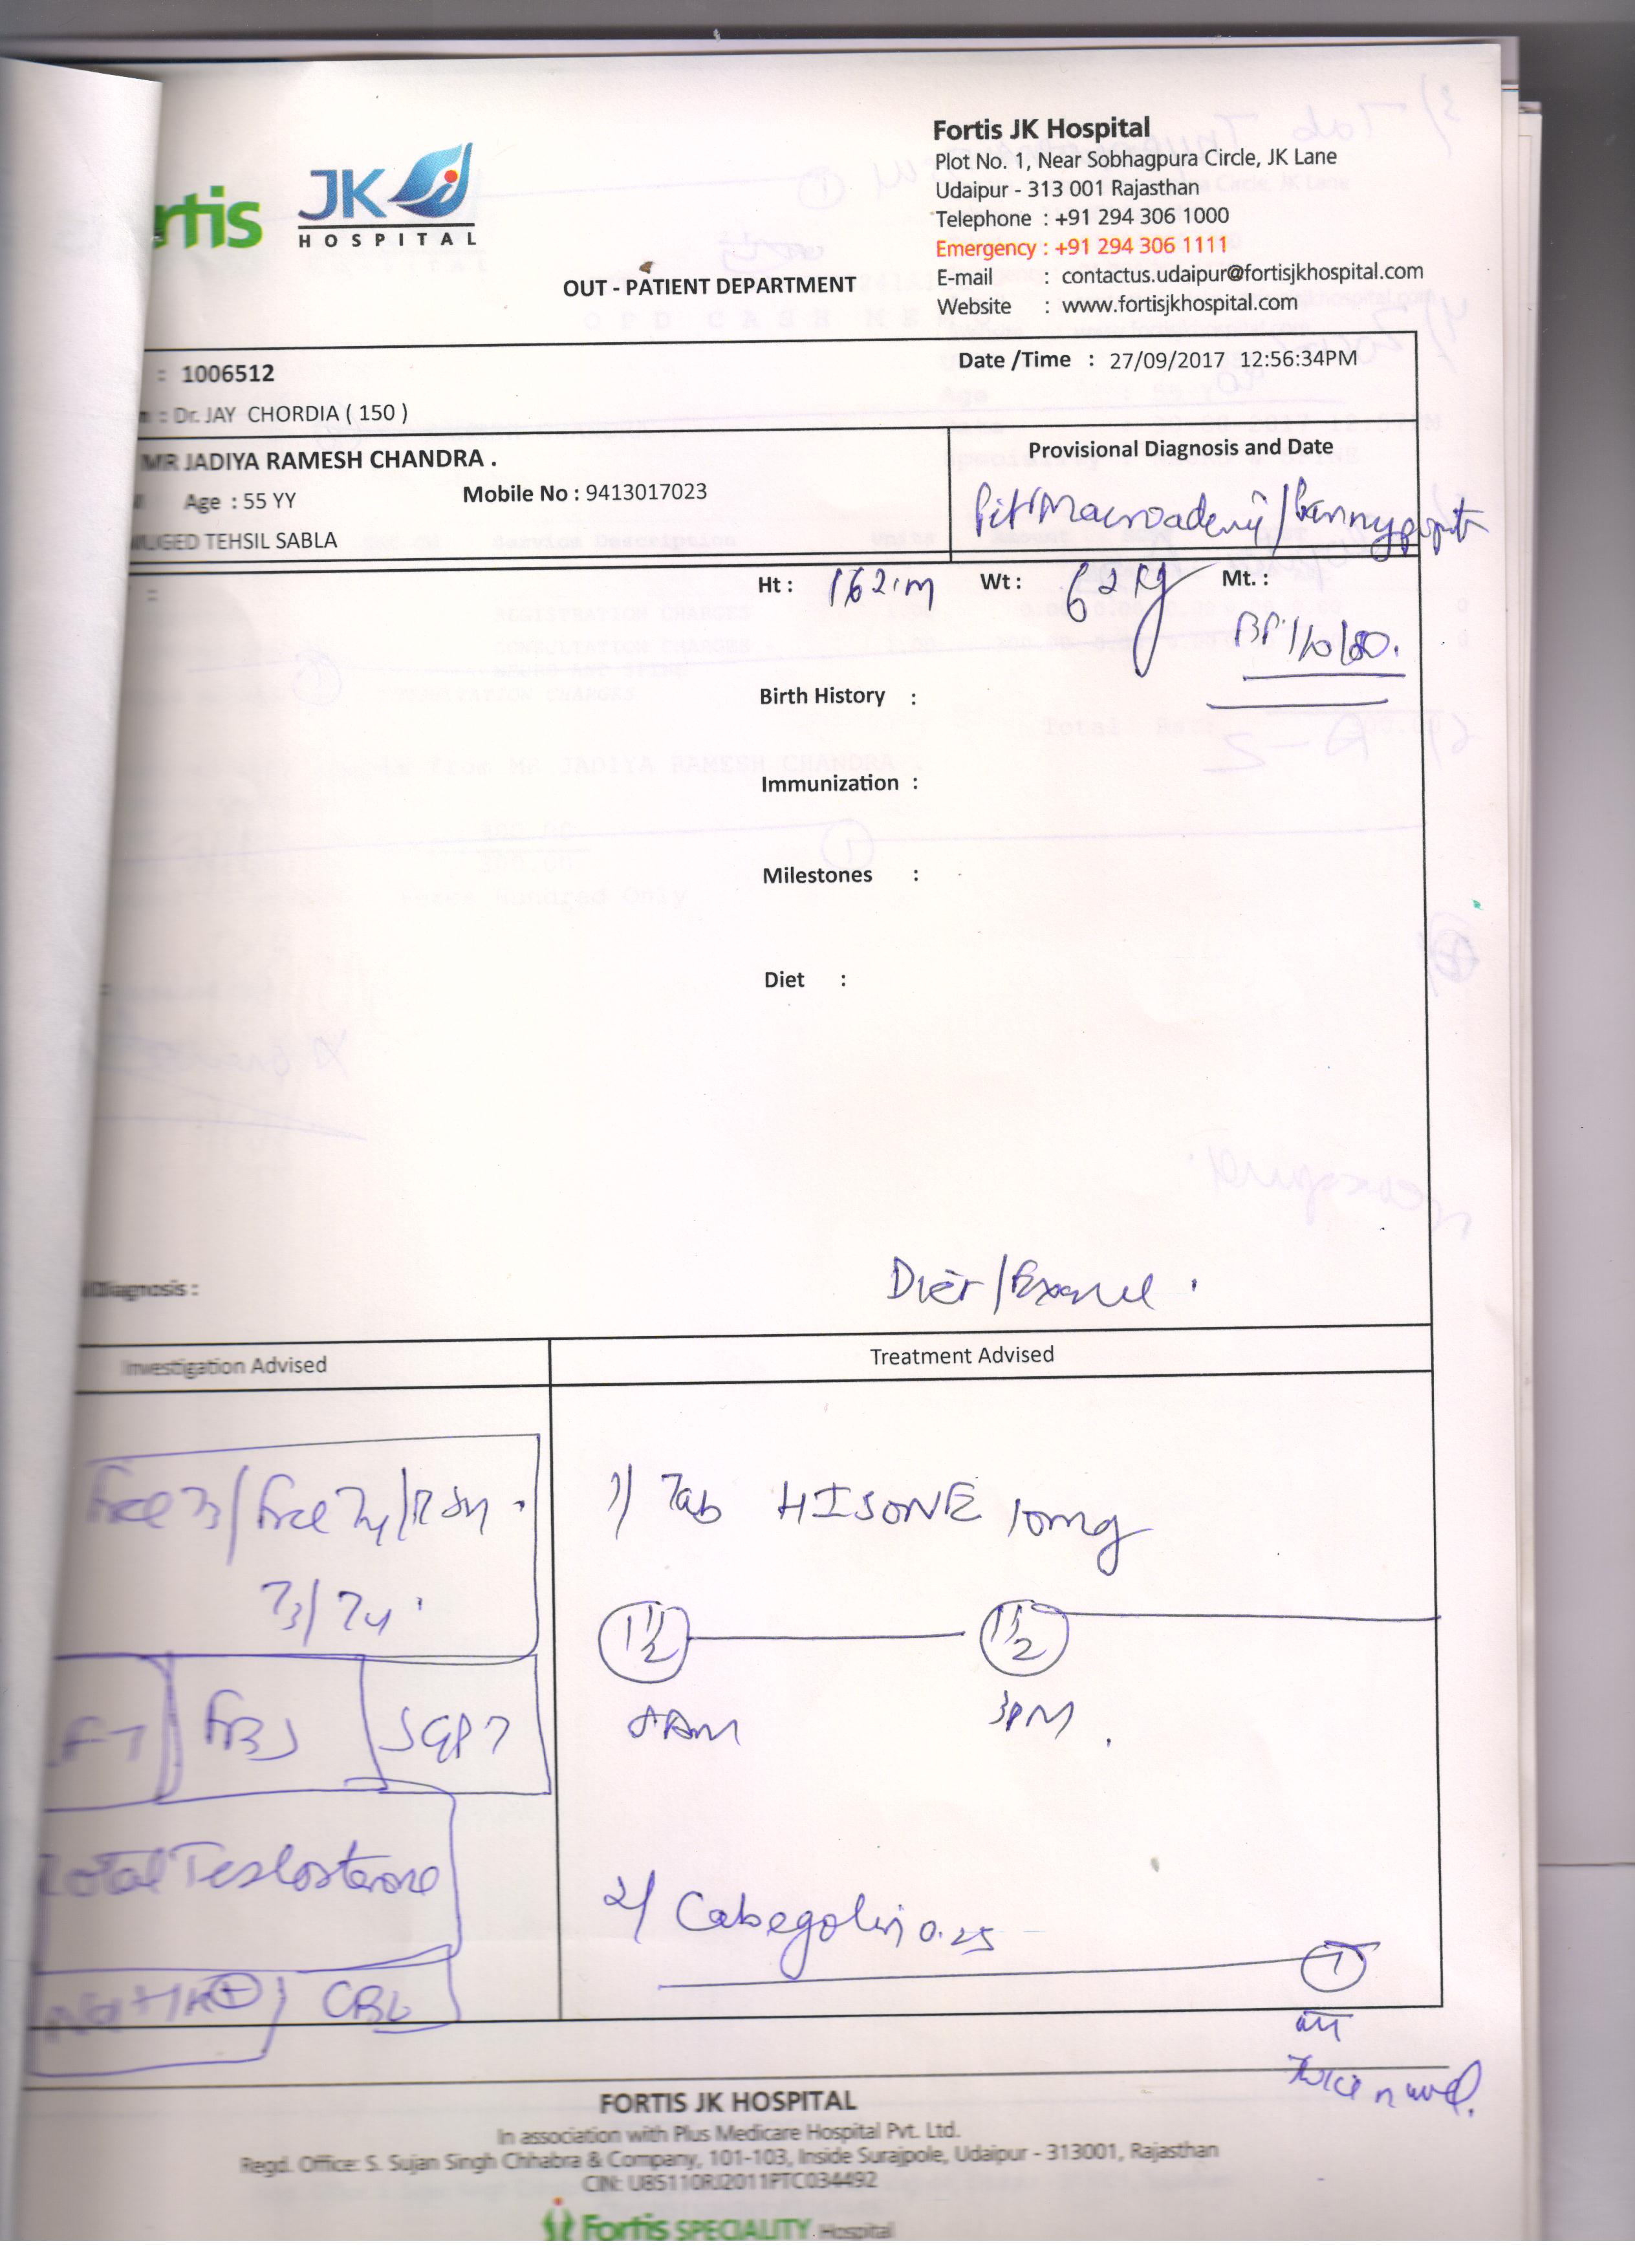 rtis JK
HOSPITAL
Fortis JK Hospital
Plot No. 1, Near Sobhagpura Circle, JK Lane
Udaipur - 313 001 Rajasthan
Telephone : +91 294 306 1000
Emergency : +91 294 306 1111
E-mail : contactus.udaipur@fortisjkhospital.com
Website : www.fortisjkhospital.com
OUT - PATIENT DEPARTMENT
: 1006512
Date /Time : 27/09/2017 12:56:34PM
: Dr. JAY CHORDIA ( 150 )
MR JADIYA RAMESH CHANDRA .
Provisional Diagnosis and Date
Age : 55 YY
Mobile No : 9413017023
Pit Macroadeno
UGED TEHSIL SABLA
Ht : 162cm Wt : 62 kg Mt. :
BP 110/80.
Birth History :
Immunization :
Milestones :
Diet :
Diet /
Diagnosis :
Investigation Advised
Treatment Advised
Free T3/ Free T4/
T3/ T4
FT FBS SGPT
Total Testosterone
Na+/K+ CBC
1) Tab HISONE 10mg
1 1/2 1 1/2
8AM 3PM.
2) Cabegolin 0.25
1
twice a week.
FORTIS JK HOSPITAL
In association with Plus Medicare Hospital Pvt. Ltd.
Regd. Office: S. Sujan Singh Chhabra & Company, 101-103, Inside Surajpole, Udaipur - 313001, Rajasthan
CIN: U85110RJ2011PTC034492
Fortis SPECIALITY Hospital